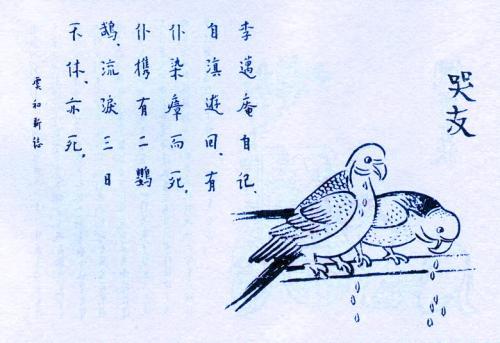 哭友
李邁庵自記、
自滇遊回、有
仆染瘴而死。
仆携有二鸚
鵡、流淚三日
不休、亦死。
虞初新誌